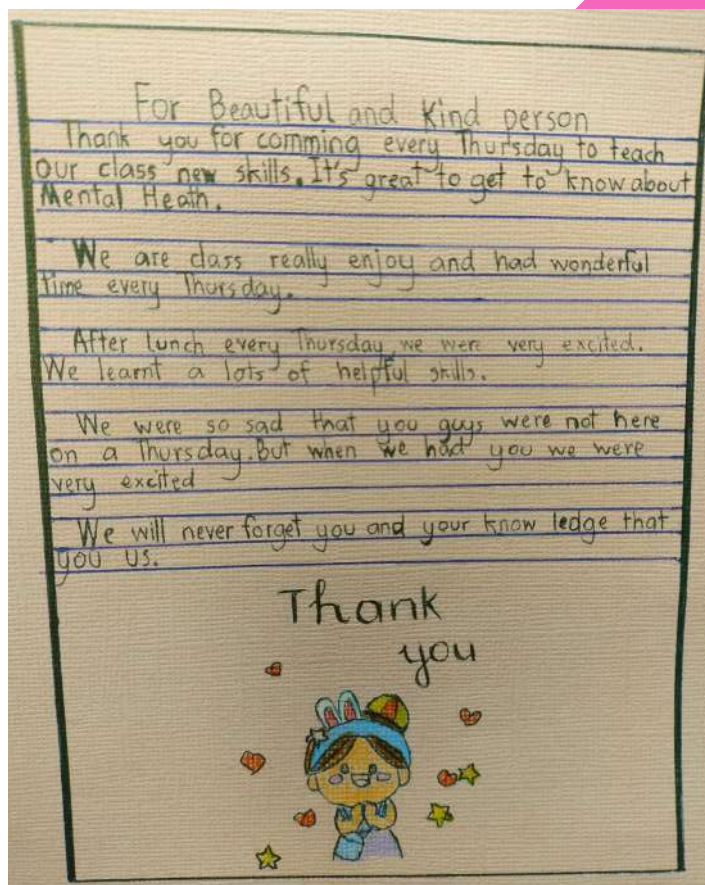 For Beautiful and Kind person
Thank you for comming every Thursday to teach
our class new skills. It's great to get to know about
Mental Heath.
We are class really enjoy and had wonderful
time every Thursday.
After lunch every Thursday we were very excited.
We learnt a lots of helpful skills.
We were so sad that you guys were not here
on a Thursday. But when we had you we were
very excited
We will never forget you and your know ledge that
you us.
Thank
you